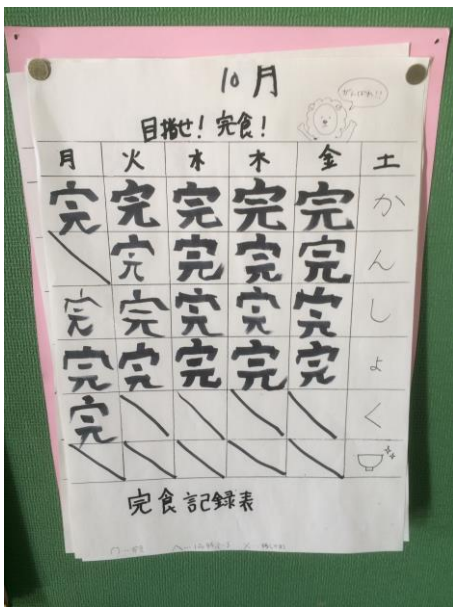 10月
がんばれ!!
目指せ！完食！
月 火 水 木 金 土
完 完 完 完 完 か
完 完 完 完 ん
完 完 完 完 完 し
完 完 完 完 完 ょ
完 く
完食記録表